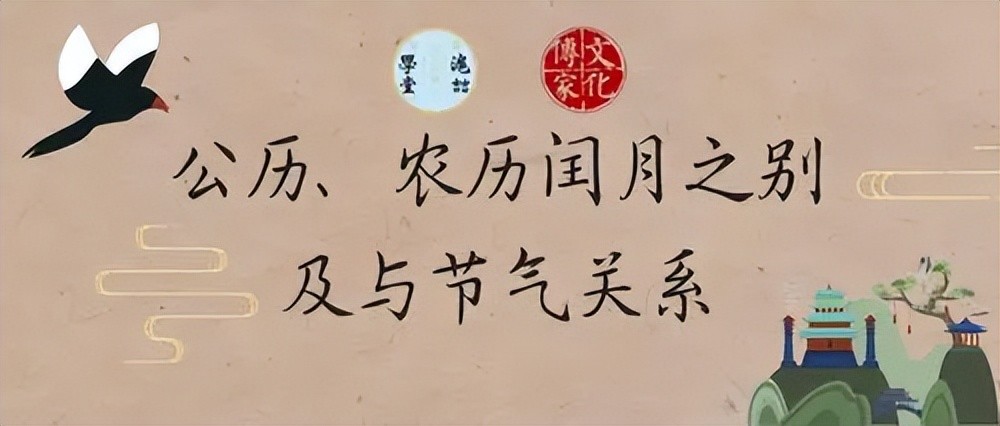 學堂
文化
傳家
公历、农历闰月之别
及与节气关系